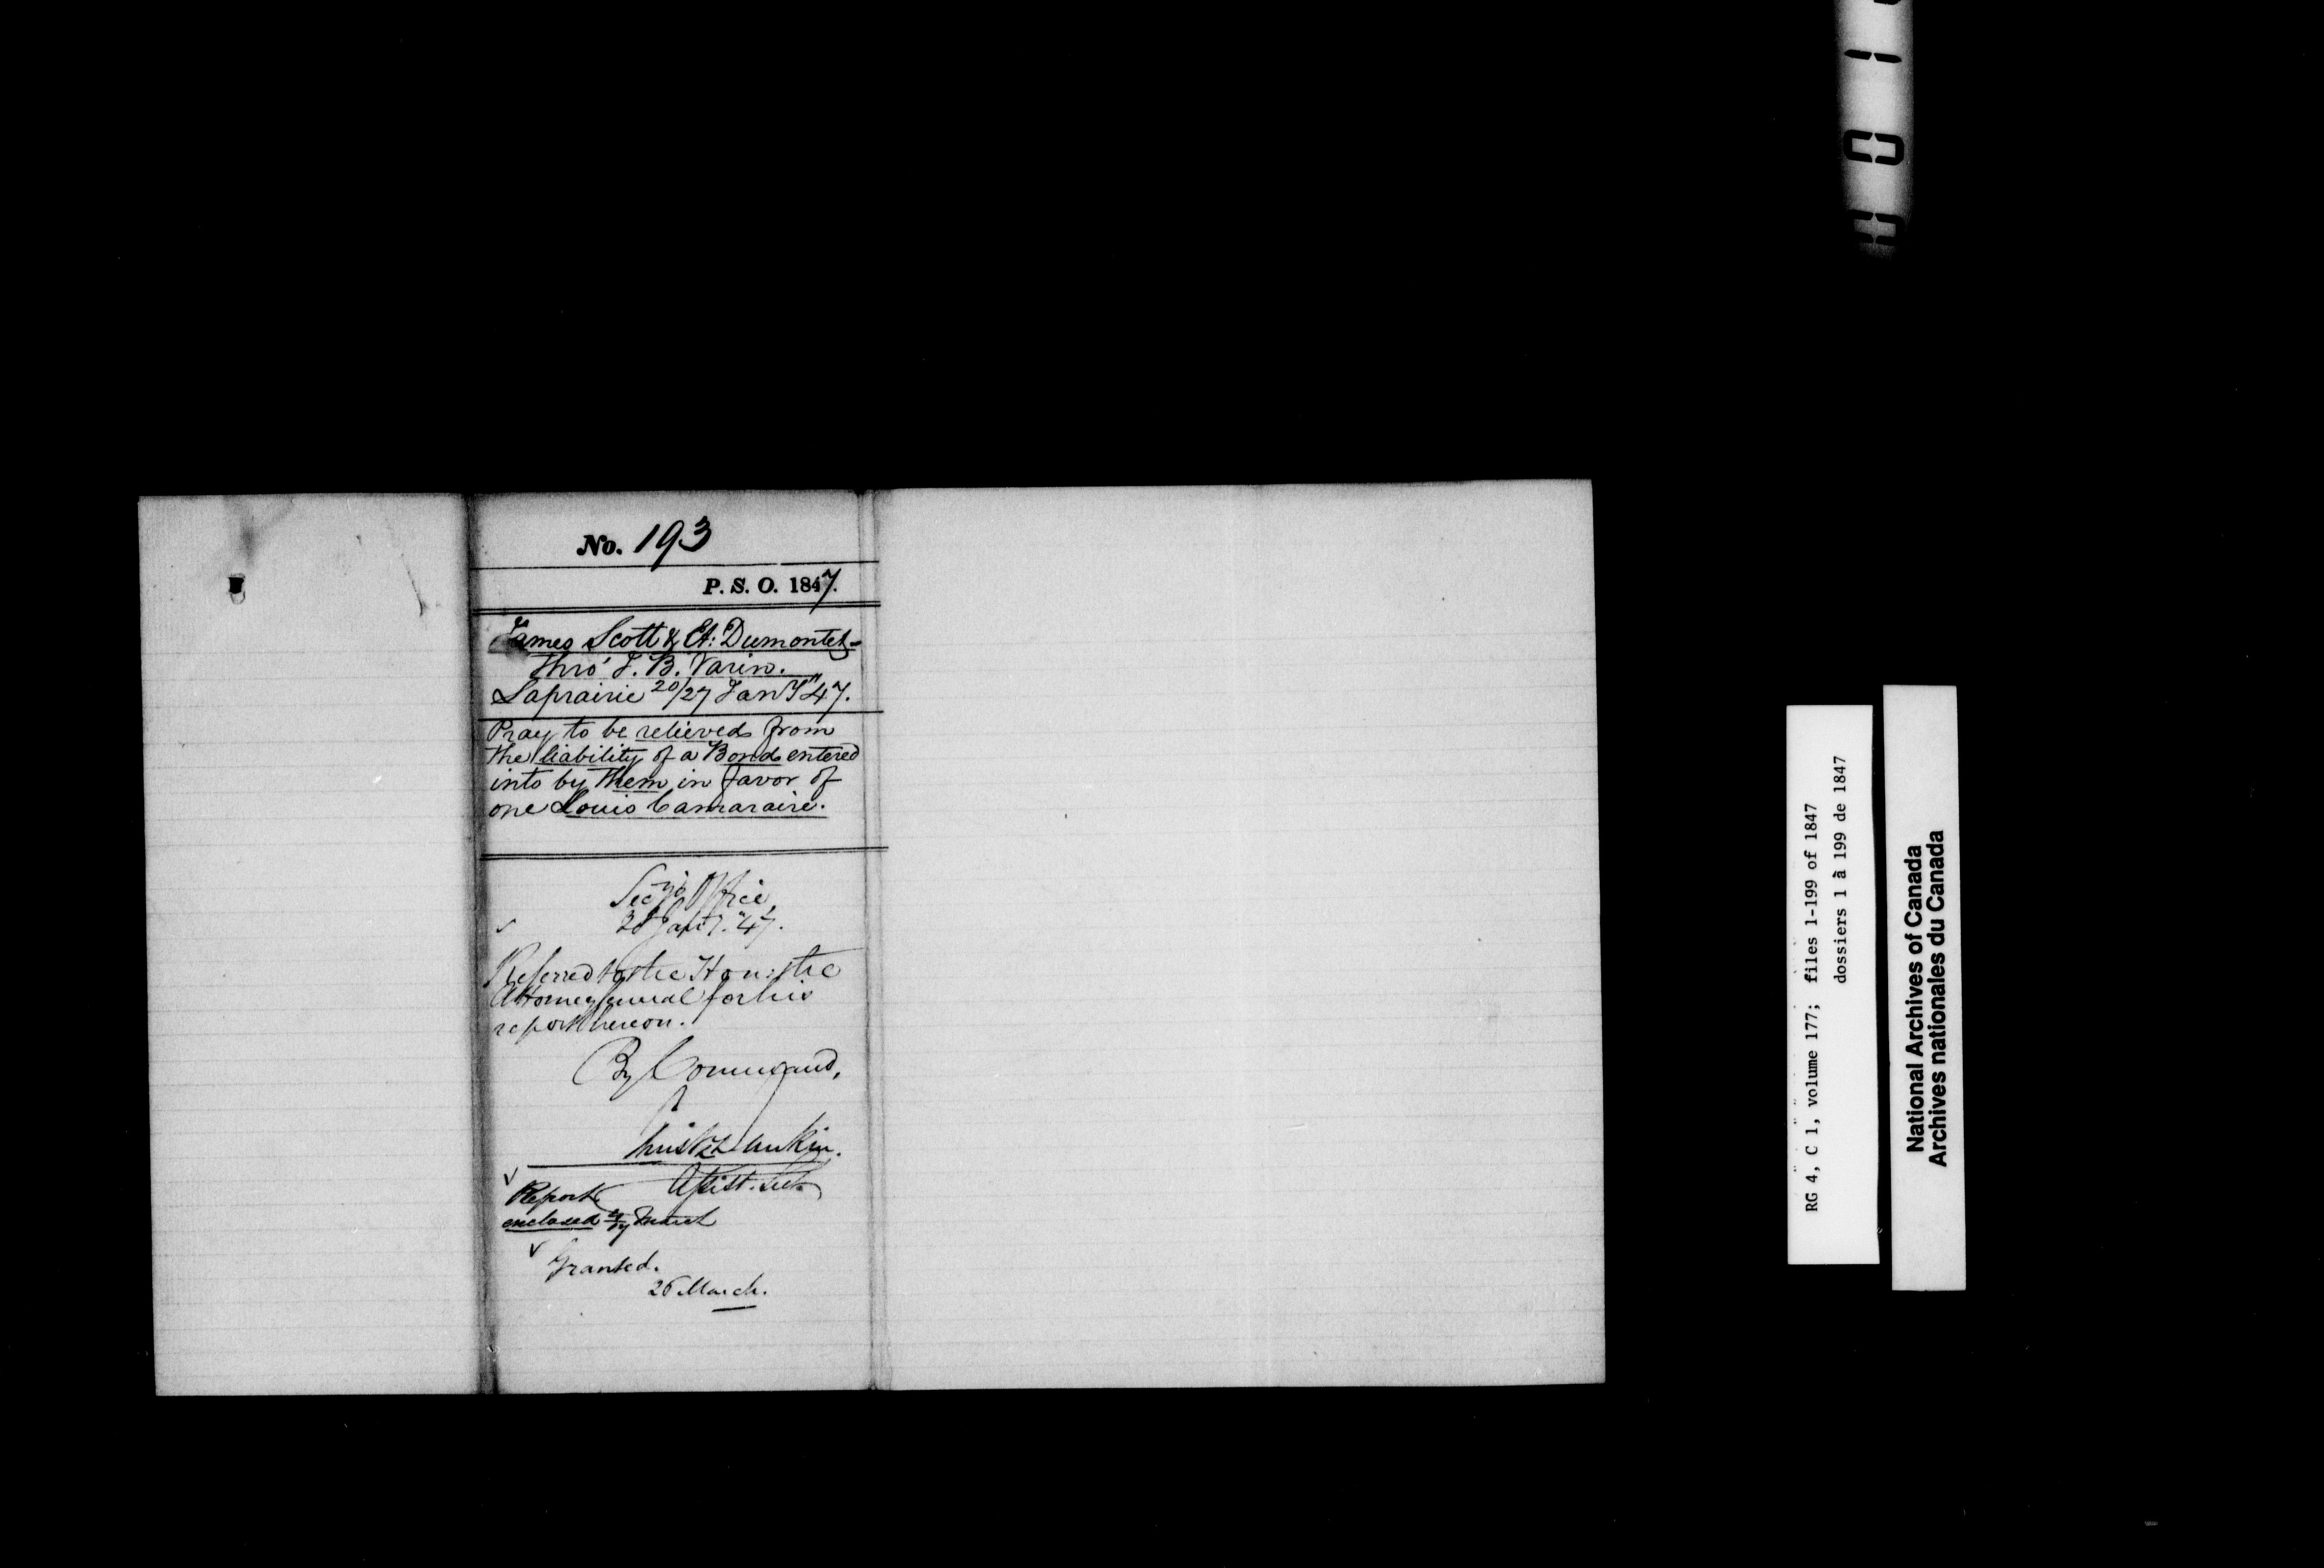 No. 193
P. S. O. 1847.
James Scott & Et: Dumontet=
Thro' J. B. Varin.
Laprairie 20/27 Jany "47.
Pray to be relieved from
the liability of a Bond entered
into by them in favor of
one Louis Camaraire.
Secy's Office,
28 Jany. "47.
Referred to the Hon: the
Attorney General for his
report hereon.
By Command,
Assist. Secy
Report
enclosed
Granted.
26 March.
RG 4, C 1, volume 177; files 1-199 of 1847
dossiers 1 à 199 de 1847
National Archives of Canada
Archives nationales du Canada